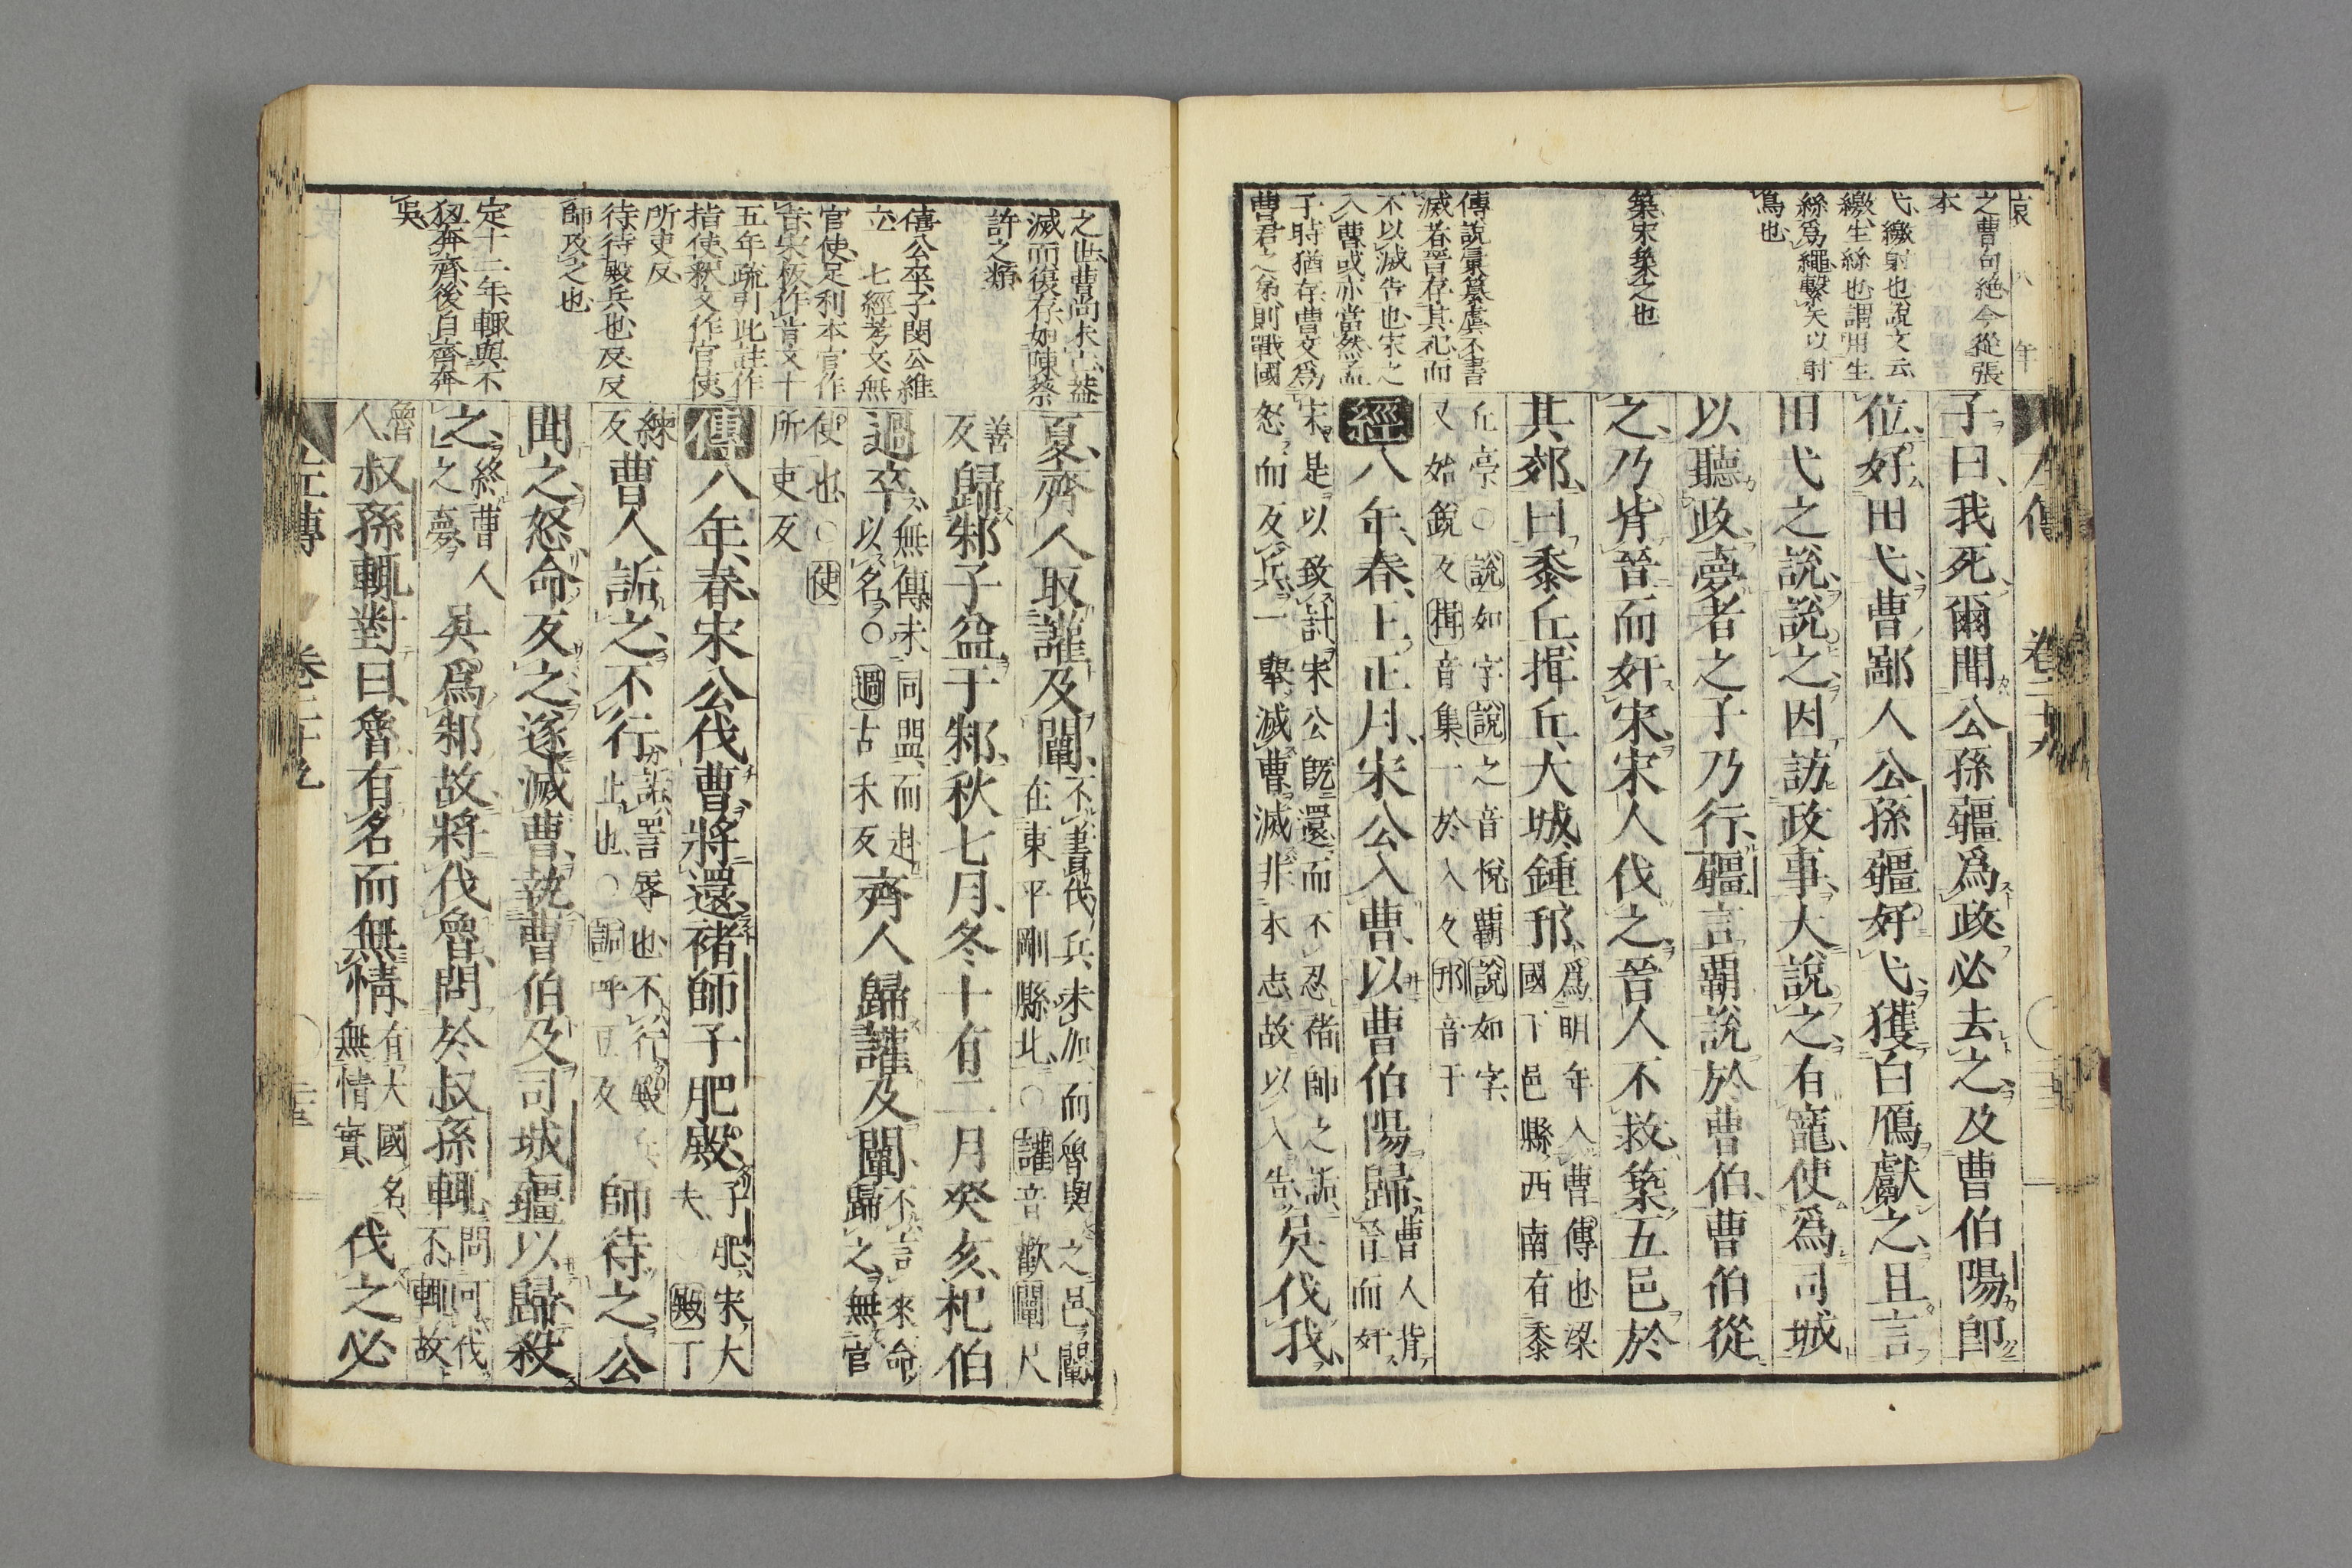 哀 八 年
之曹句絶今從張
本
弋繳射也説文云
繳生絲也謂用生
絲爲繩繫矢以射
鳥也
築宋築之也
不以滅告也宋之
入曹或亦當然孟
子時猶存曹交爲
曹君之弟則戰國
子曰、我死爾聞公孫疆爲政必去之及曹伯陽卽
位、好田弋、曹鄙人公孫疆好弋、獲白鴈獻之、且言
田弋之説、説之、因訪政事、大説之、有寵、使爲司城
以聽政、夢者之子乃行、疆言霸説於曹伯、曹伯從
之、乃背晉而奸宋、宋人伐之、晉人不救、築五邑於
其郊、曰黍丘、揖丘、大城、鍾邘、
爲明年入曹傳也梁
國下邑縣西南有黍
丘亭○説如字説之音悅霸説如字
又始銳反揖音集一於入反邘音于
經八年、春、王正月、宋公入曹、以曹伯陽歸、
曹人背
晉而奸
宋是以致討宋公既還而不忍褚師之詬
怒而反兵一舉滅曹滅非本志故以入告
吳伐我、
之世曹尚未亡葢
滅而復存如陳蔡
許之類
僖公卒子閔公維
立 七經考文無
官使足利本官作
音宋板作肯文十
五年疏引此註作
指使釈文作官使
所吏反
待待殿兵也反反
師及之也
定十二年輒與不
狃奔齊後自齊奔
吳
夏、齊人取讙及闡、
不書伐兵未加而魯與之邑闡
在東平剛縣北○讙音歡闡尺
善
反
歸邾子益于邾、秋七月、冬十有二月癸亥、杞伯
過卒、
無傳未同盟而赴
以名○過古禾反
齊人歸讙及闡、
不言來命
歸之無官
使也○使
所吏反
傳八年、春、宋公伐曹、將還、褚師子肥殿、
子肥宋大
夫○殿丁
練
反
曹人詬之、不行、
詬詈辱也不行殿兵
止也○詬呼豆反
師待之、公
聞之、怒、命反之、遂滅曹、執曹伯及司城疆以歸、殺
之、
終曹人
之夢
吳爲邾故、將伐魯、問於叔孫輒、
問可伐
不輒故
魯
人
叔孫輒對曰、魯有名而無情、
有大國名
無情實
伐之必
左傳 卷二十九